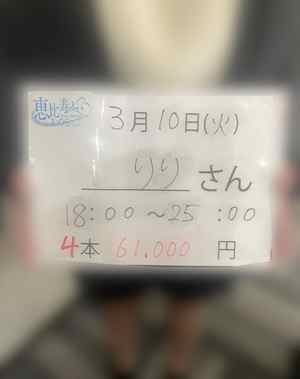 恵比寿
3月10日(火)
りりさん
18:00～25:00
4本 61,000 円